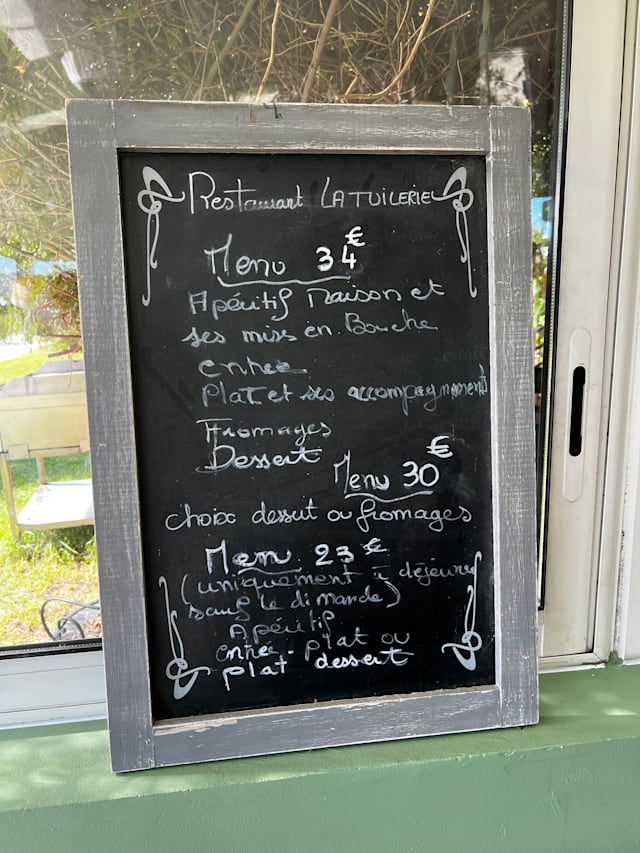 Restaurant LA TUILERIE
Menu 34€
Apéritif maison et
ses mises en Bouche
entrée
Plat et ses accompagnements
Fromages
Dessert
Menu 30€
choix dessert ou fromages
Menu 23€
(uniquement à déjeuner
sauf le dimanche)
Apéritif
entrée - plat ou
plat dessert